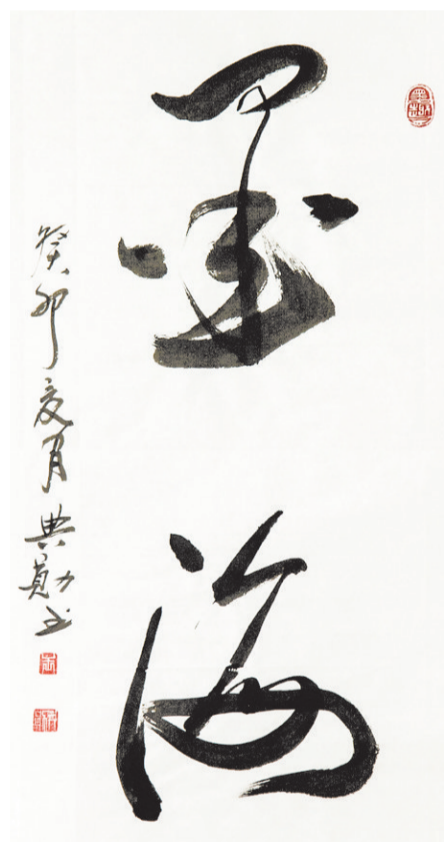 墨海
癸卯夏月典勛书